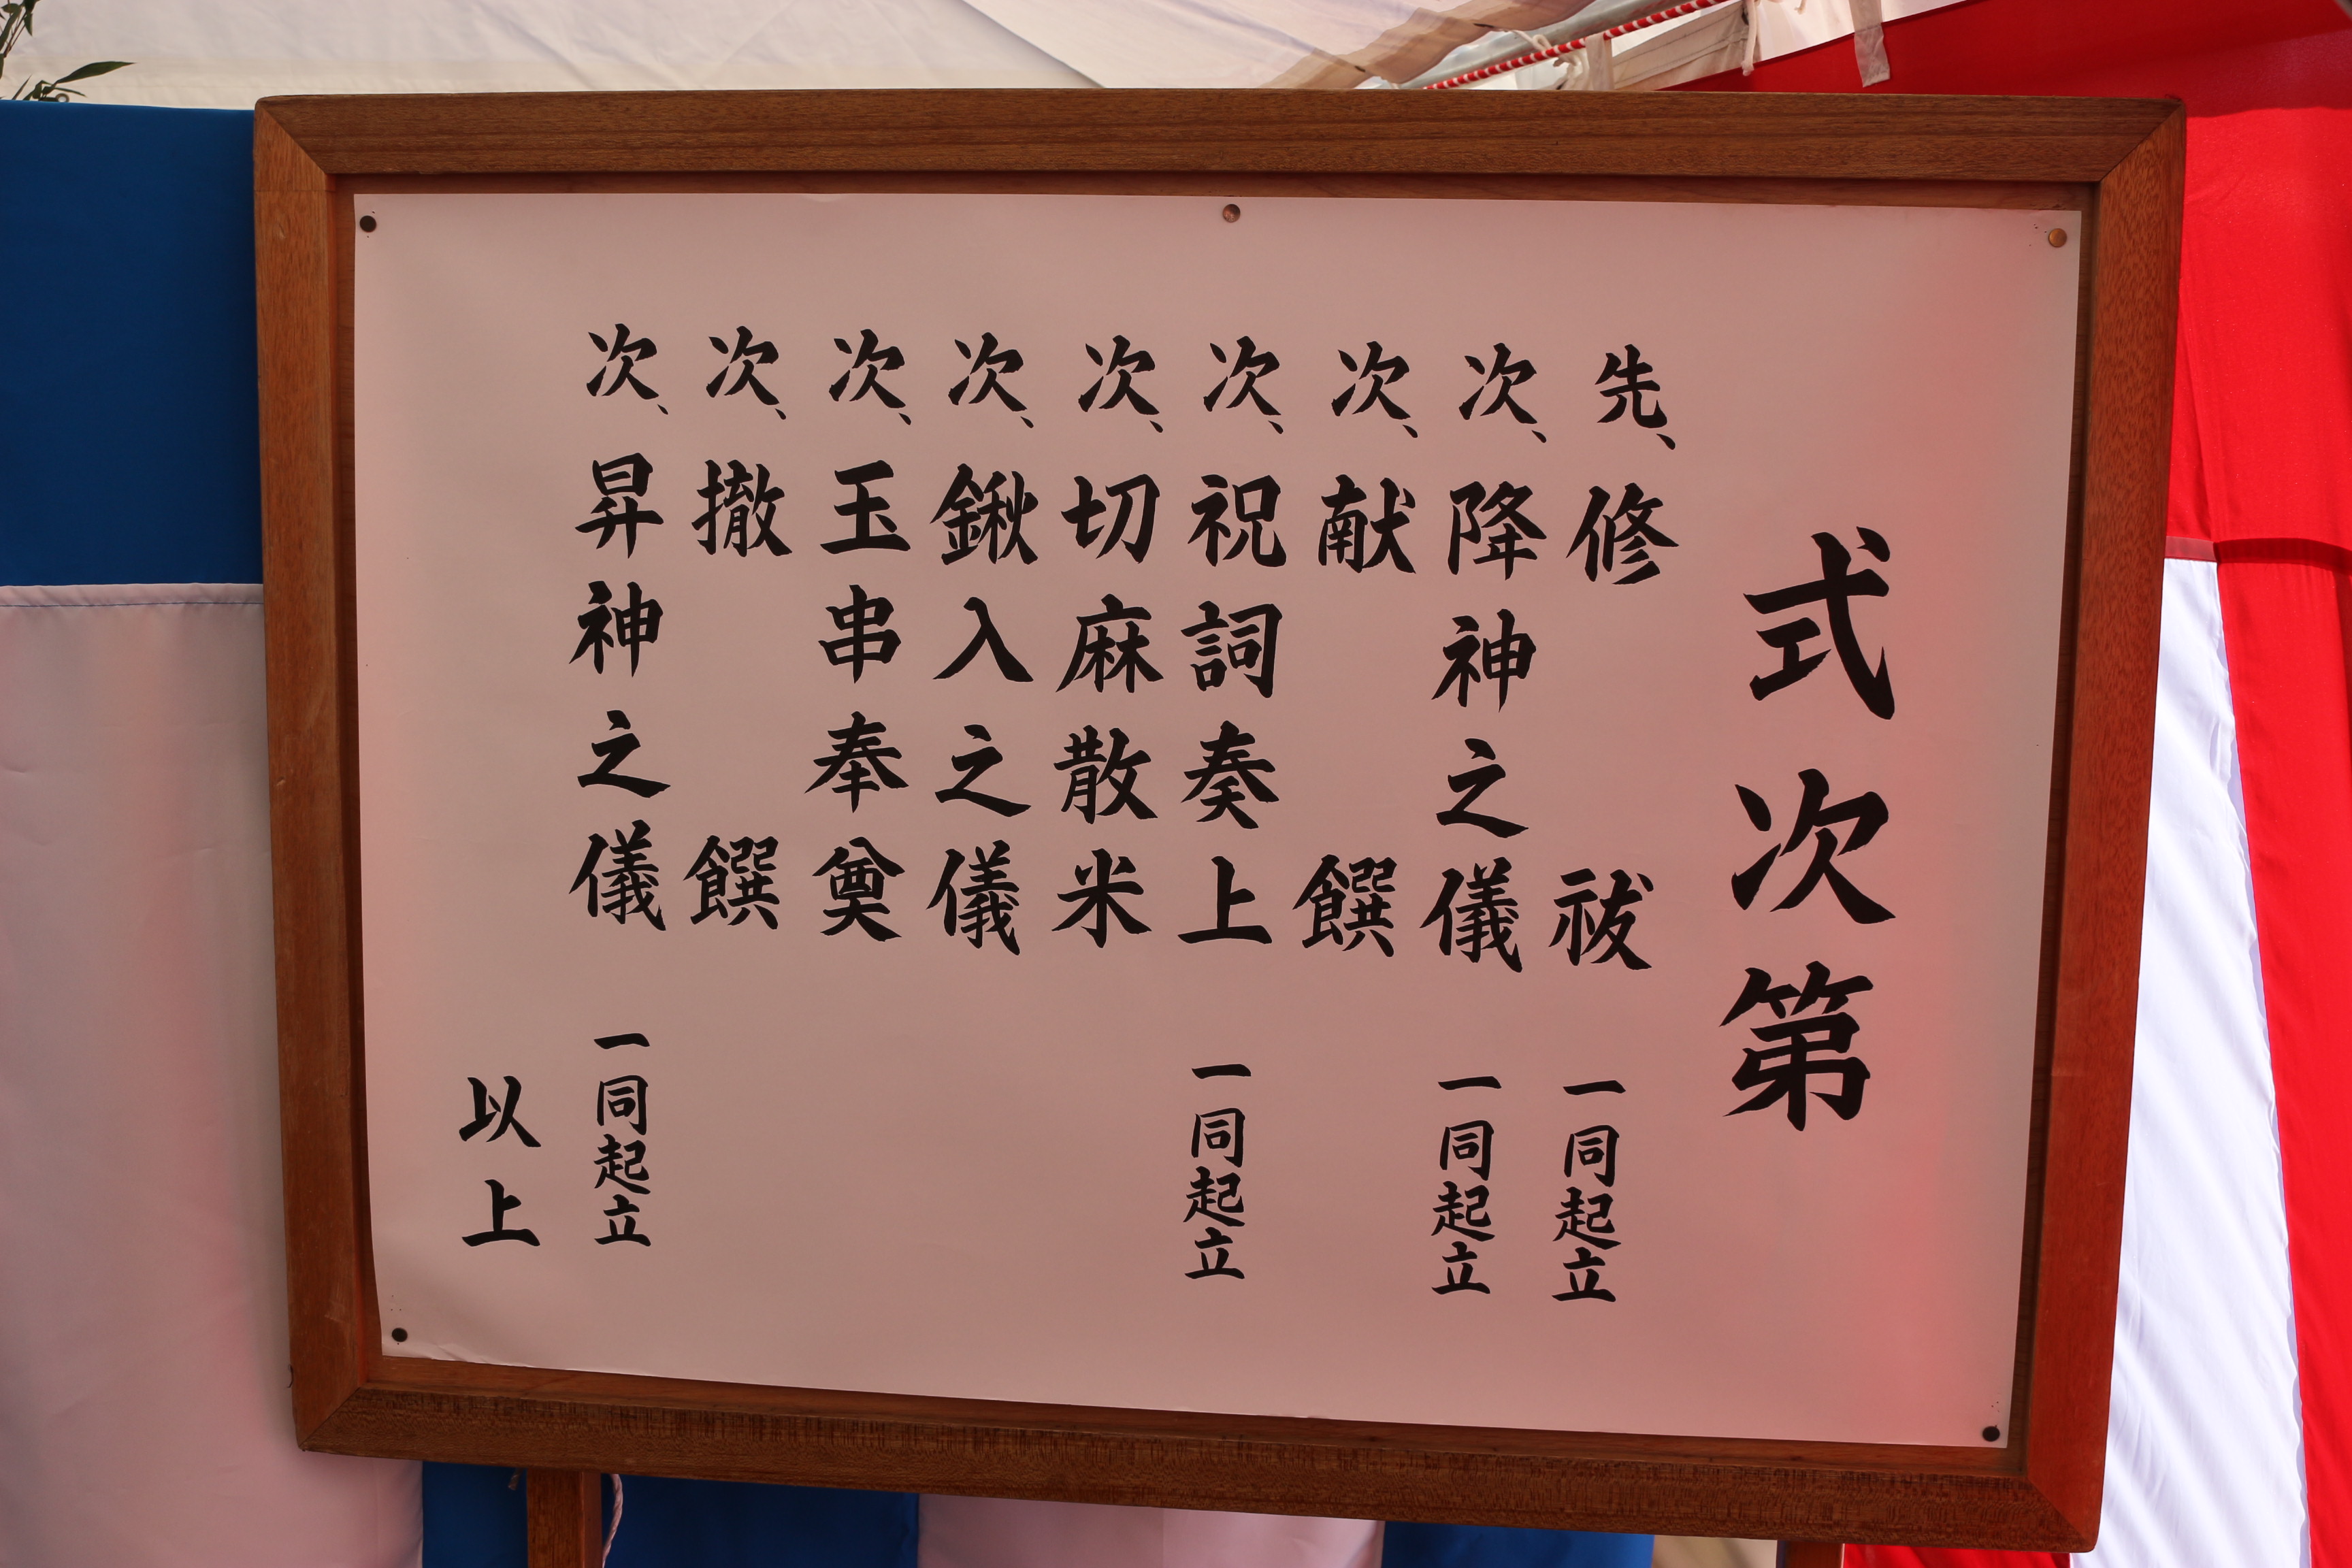 式次第
先、修祓 一同起立
次、降神之儀 一同起立
次、献饌
次、祝詞奏上 一同起立
次、切麻散米
次、鍬入之儀
次、玉串奉奠
次、撤饌
次、昇神之儀 一同起立
以上